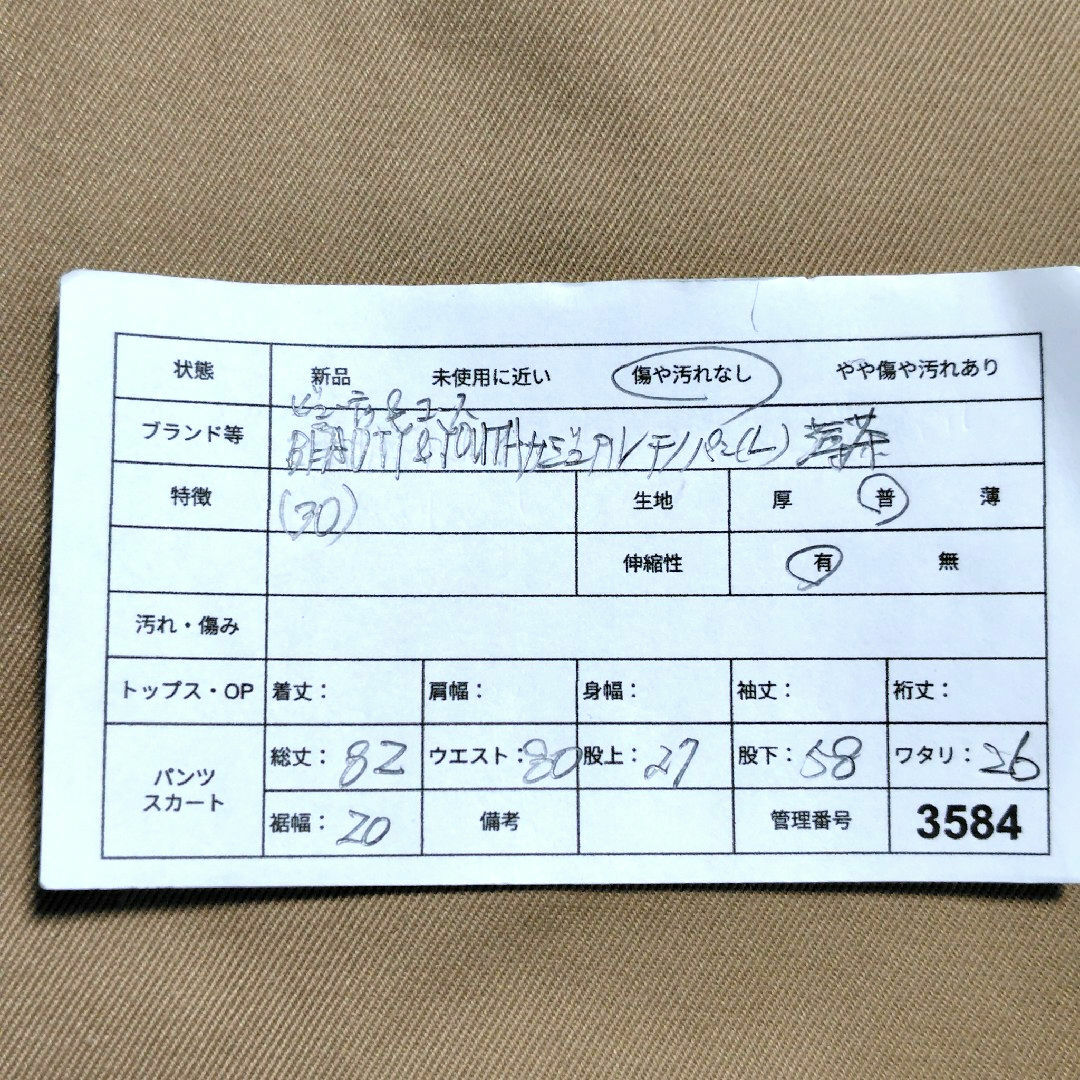 状態 新品 未使用に近い 傷や汚れなし やや傷や汚れあり
ビューティ&ユース
ブランド等 BEAUTY&YOUTH カジュアルチノパン(L) 茶
特徴 (30) 生地 厚 普 薄
伸縮性 有 無
汚れ・傷み
トップス・OP 着丈: 肩幅: 身幅: 袖丈: 裄丈:
パンツ スカート 総丈: 82 ウエスト: 80 股上: 27 股下: 58 ワタリ: 26
裾幅: 20 備考 管理番号 3584